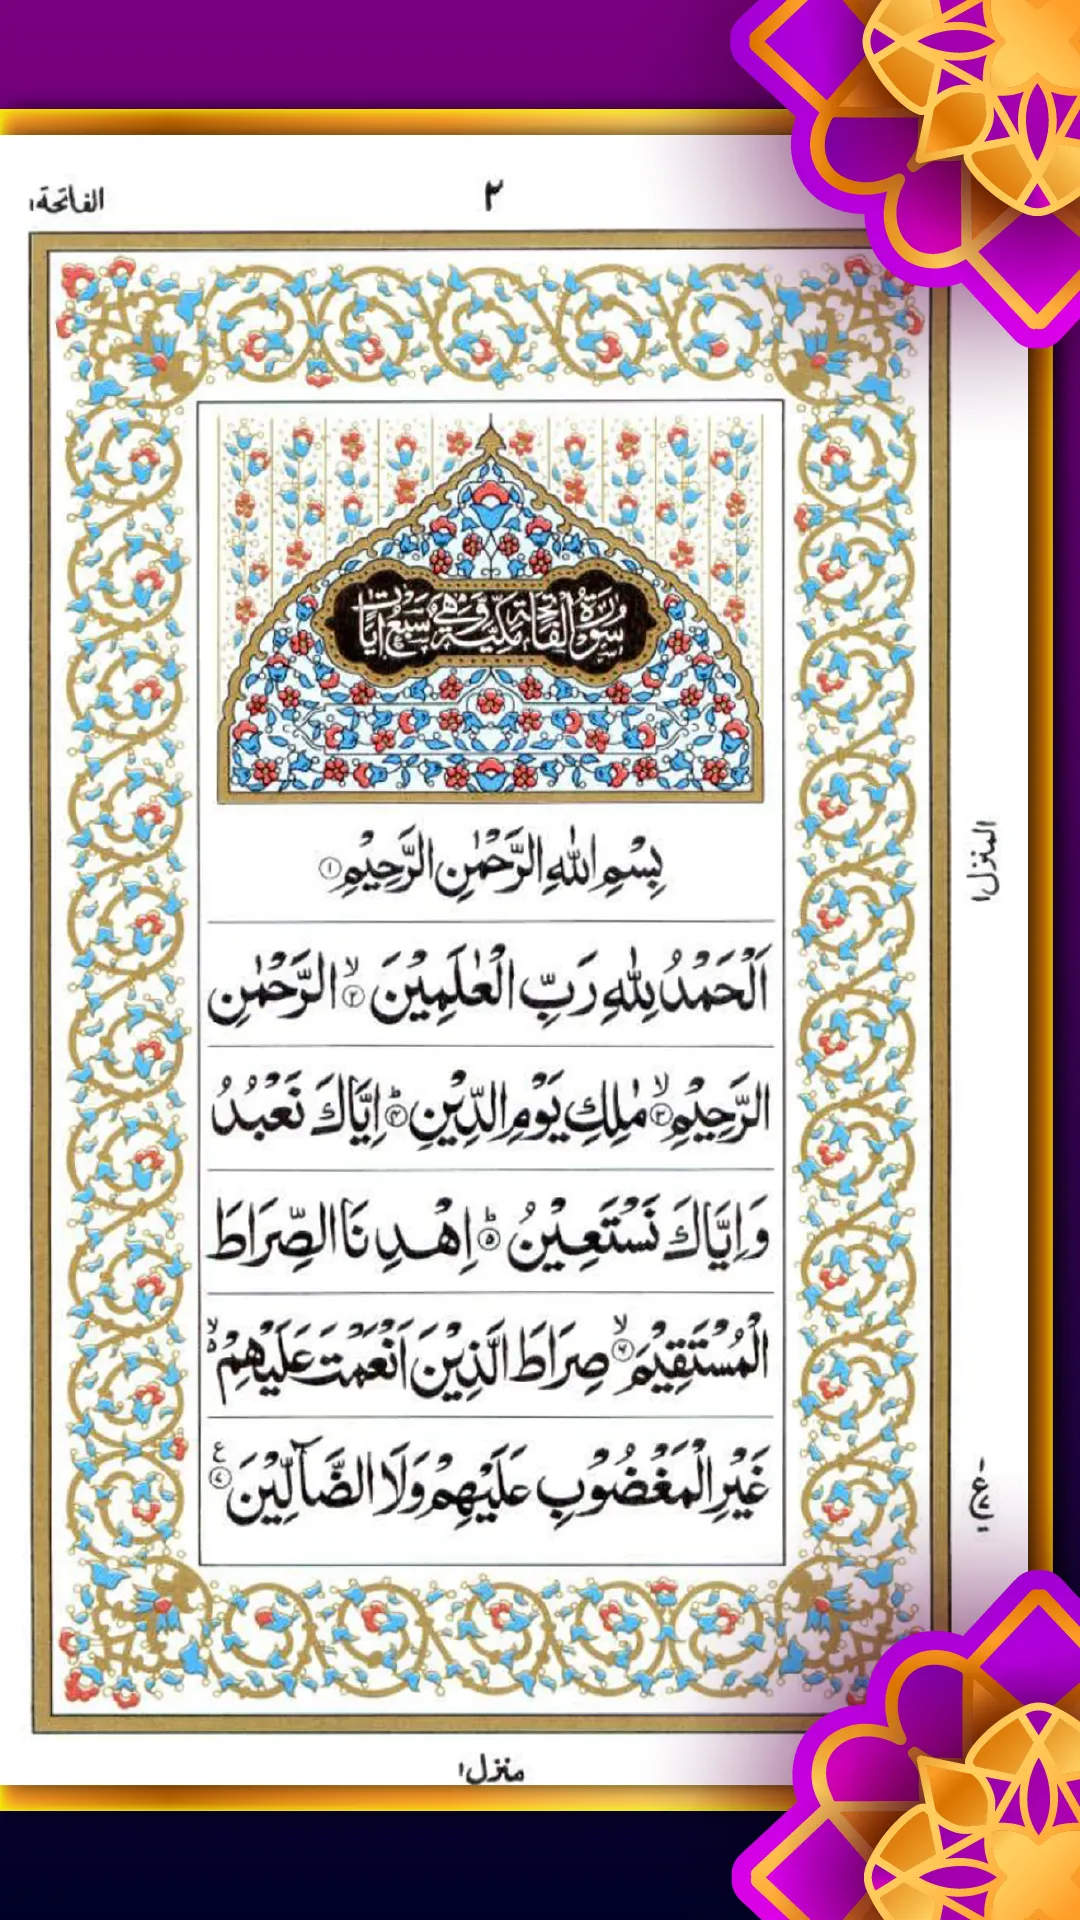 الفاتحة ١
٢
سُوْرَةُ الْفَاتِحَةِ مَكِّيَّةٌ وَّهِيَ سَبْعُ اٰيَاتٍ
بِسْمِ اللّٰهِ الرَّحْمٰنِ الرَّحِيْمِ ۝١
اَلْحَمْدُ لِلّٰهِ رَبِّ الْعٰلَمِيْنَ ۙ۝٢ الرَّحْمٰنِ
الرَّحِيْمِ ۙ۝٣ مٰلِكِ يَوْمِ الدِّيْنِ ؕ۝٤ اِيَّاكَ نَعْبُدُ
وَاِيَّاكَ نَسْتَعِيْنُ ؕ۝٥ اِهْدِنَا الصِّرَاطَ
الْمُسْتَقِيْمَ ۙ۝٦ صِرَاطَ الَّذِيْنَ اَنْعَمْتَ عَلَيْهِمْ ۙ۬
غَيْرِ الْمَغْضُوْبِ عَلَيْهِمْ وَلَا الضَّآلِّيْنَ ۝٧ ع
المنزل ١
منزل ١